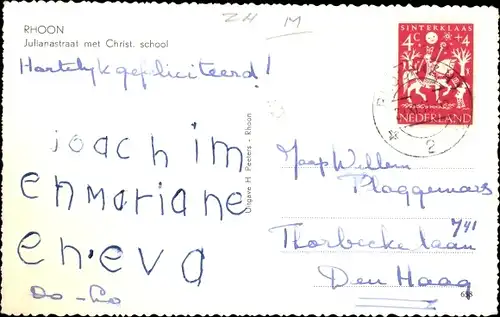 ZH M
RHOON
Julianastraat met Christ. school
Hartelijk gefeliciteerd!
joachim
en mariane
en. eva
Uitgave H. Peeters - Rhoon
SINTERKLAAS
4 C +4
NEDERLAND
2
Jaap Willem
Plaggemars
Thorbeckelaan
Den Haag
658